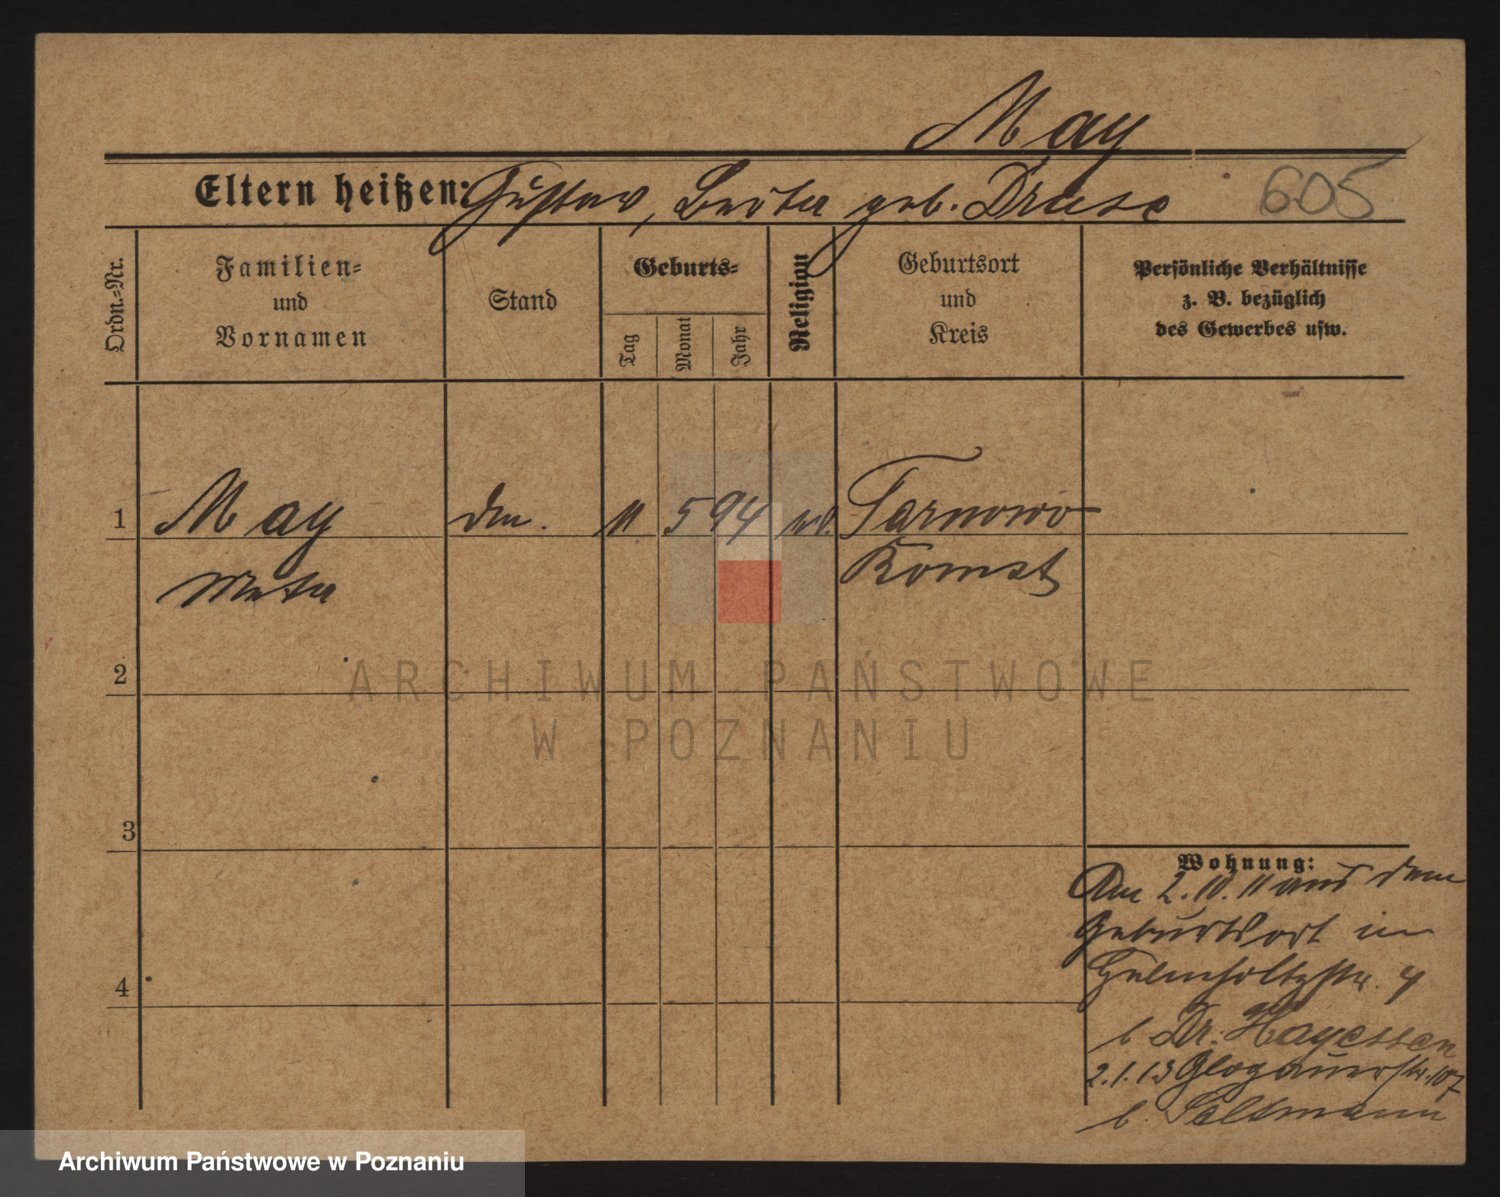 May
Eltern heißen: Gustav, Berta geb. Druse
605
Ordn.-Nr.
Familien-
und
Vornamen
Stand
Geburts-
Tag
Monat
Jahr
Religion
Geburtsort
und
Kreis
Persönliche Verhältnisse
z. B. bezüglich
des Gewerbes usw.
1 May 11 5 94 Tarnowo
Meta Bomst
2
ARCHIWUM PAŃSTWOWE
W POZNANIU
3
4
Wohnung:
Am 2.10.11 aus dem
Geburtsort in
Helmholtzstr. 4
b Dr. Hayessen
2.1.13 Glogauerstr. 107
b.
Archiwum Państwowe w Poznaniu